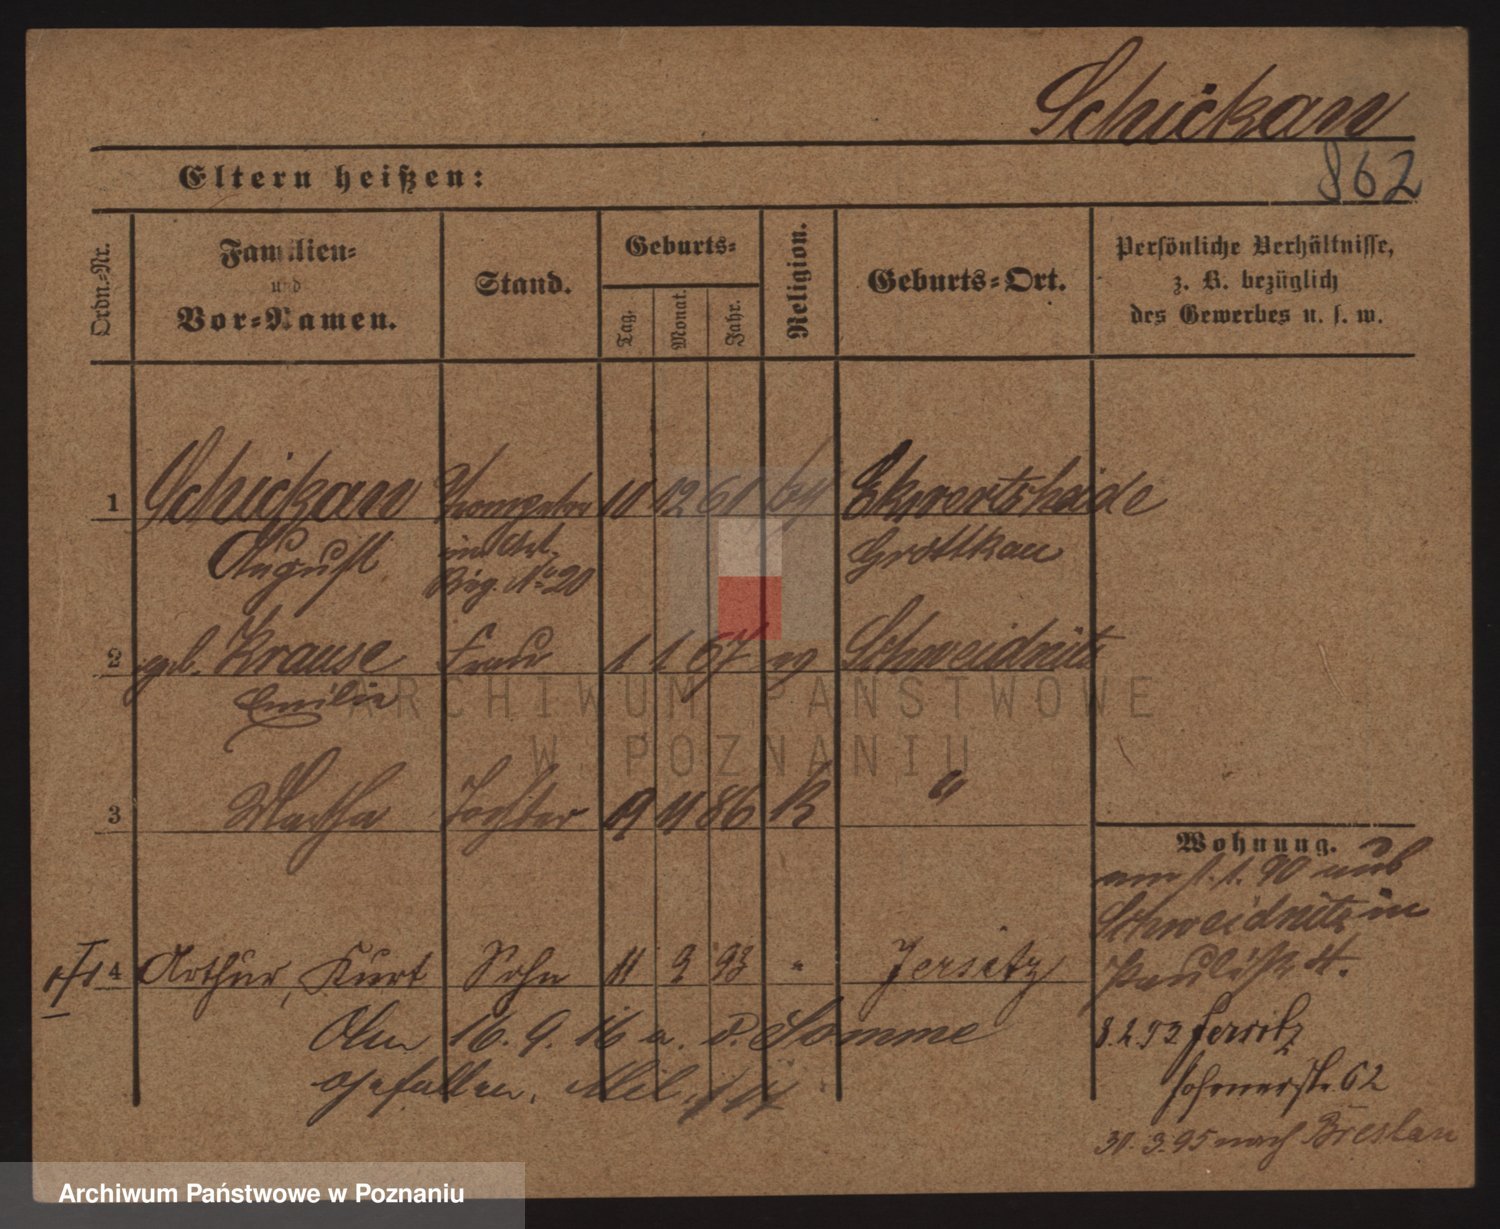 Schickan
862
Eltern heißen:
Ordn.-Nr.
Familien-
und
Vor-Namen.
Stand.
Geburts-
Tag.
Monat.
Jahr.
Religion.
Geburts-Ort.
Persönliche Verhältnisse,
z. B. bezüglich
des Gewerbes u. s. w.
1 Schickan 11 12 61
August
Reg. No 20
Grottkau
2 geb. Krause Frau 1 1 67 ev Schweidnitz
Emilie
3 Martha Tochter 19 11 86 K "
4 Arthur, Kurt Sohn 11 9 93 " Jersitz
Am 16. 9. 16 a. d. Somme
gefallen. Mil.
Wohnung.
am 1. 1. 90 aus
Schweidnitz in
8.2.93 Jersitz
62
30. 3. 95 nach Breslau
ARCHIWUM PAŃSTWOWE
W POZNANIU
Archiwum Państwowe w Poznaniu